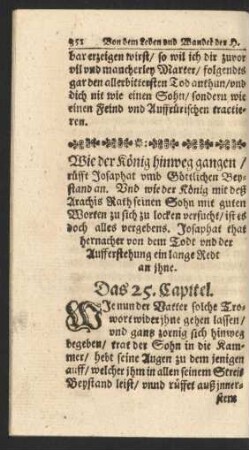 352 Von dem Leben vnd Wandel der H.
bar erzeigen wirst / so wil ich dir zuvor
vil vnd mancherley Marter / folgendts
gar den allerbittersten Tod anthun / vnd
dich nit wie einen Sohn / sondern wie
einen Feind vnd Auffrürischen tractie-
ren.
Wie der König hinweg gangen /
rüfft Josaphat vmb Göttlichen Bey-
stand an. Vnd wie der König mit deß
Arachis Rath seinen Sohn mit guten
Worten zu sich zu locken versucht / ist es
doch alles vergebens. Josaphat that
hernacher von dem Todt vnd der
Aufferstehung ein lange Redt
an jhne.
Das 25. Capitel.
WJe nun der Vatter solche Tro-
wort wider jhne gehen lassen /
vnd gantz zornig sich hinweg
begeben / trat der Sohn in die Kam-
mer / hebt seine Augen zu dem jenigen
auff / welcher jhm in allen seinem Streit
Beystand leist / vnnd rüffet auß jnner-
stem